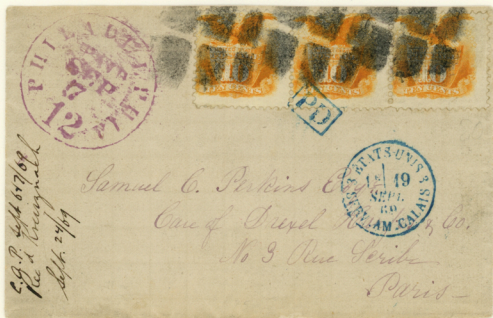 PHILADELPH
PAID
SEP
7
12
10
TEN CENTS
10
TEN CENTS
10
TEN CENTS
PD
3 ETATS-UNIS 3
19
SEPT.
69
SERV. AM. CALAIS
Samuel C. Perkins Esq
Care of Drexel & Co.
No 3 Rue Scribe
Paris
C.G.P. Sept 6 & 7/69
Rec'd
Sept. 24/69